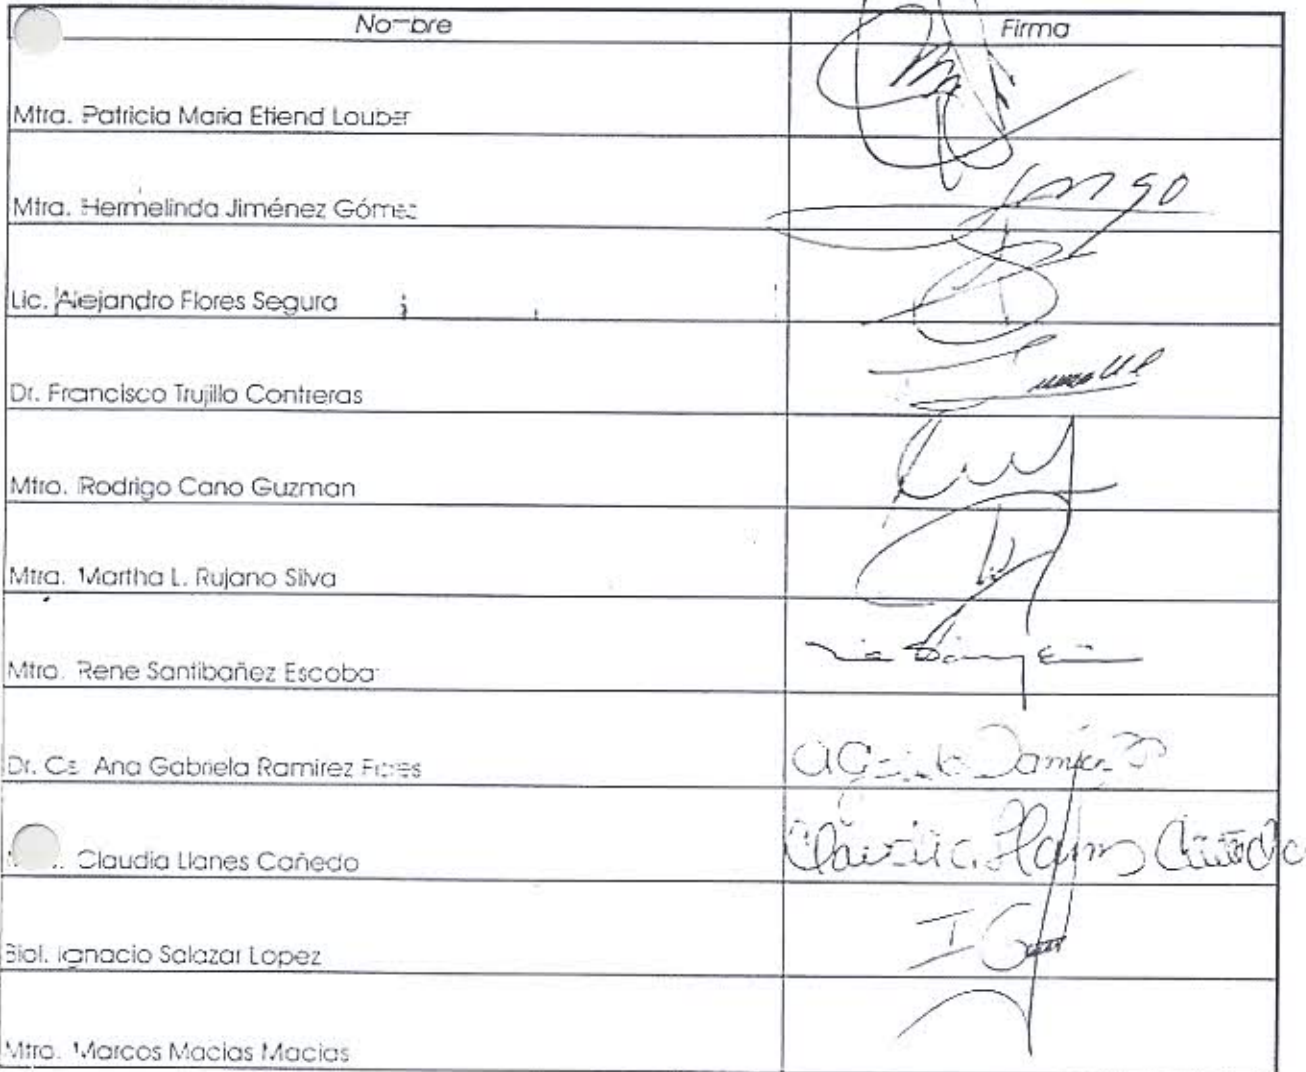 Nombre Firma
Mtra. Patricia Maria Etiend Louber
Mtra. Hermelinda Jiménez Gómez
Lic. Alejandro Flores Segura
Dr. Francisco Trujillo Contreras
Mtro. Rodrigo Cano Guzman
Mtra. Martha L. Rujano Silva
Mtro. Rene Santibañez Escobar
Dr. Ana Gabriela Ramirez Flores
Claudia Llanes Cañedo Claudia Llanes Cañedo
Biol. Ignacio Salazar Lopez
Mtro. Marcos Macias Macias